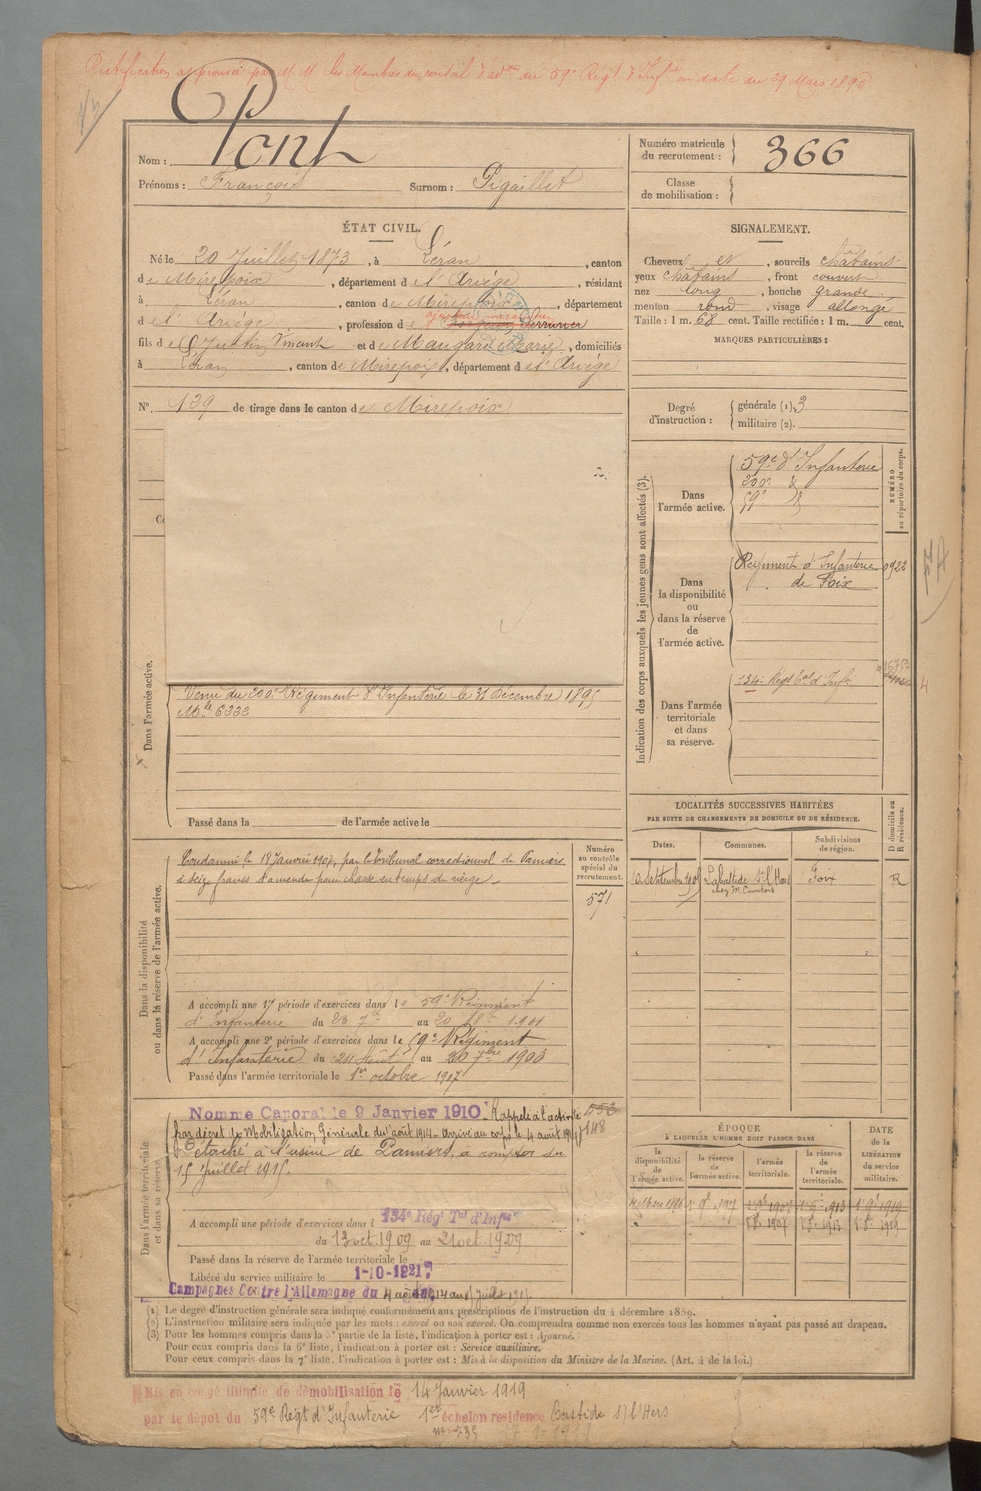 Rectification approuvée par M. M. les Membres du conseil d'adon du 59e Régt d'Infie en date du 29 Mars 1896
Nom : Pont
Prénoms : François Surnom : Pigaillet
Numéro matricule du recrutement : 366
Classe de mobilisation :
ÉTAT CIVIL.
Né le 20 Juillet 1873, à Léran, canton
de Mirepoix, département de l'Ariège, résidant
à Léran, canton de Mirepoix, département
de l'Ariège, profession de serrurier
fils de Justin Vincent et de Maugard Marie, domiciliés
à Léran, canton de Mirepoix, département de l'Ariège
N° 139 de tirage dans le canton de Mirepoix
SIGNALEMENT.
Cheveux et, sourcils châtains
yeux châtains, front couvert
nez long, bouche grande
menton rond, visage allongé
Taille : 1 m. 68 cent. Taille rectifiée : 1 m. cent.
MARQUES PARTICULIÈRES :
Degré d'instruction : générale (1). 3
militaire (2).
Indication des corps auxquels les jeunes gens sont affectés (3).
NUMÉRO au répertoire du corps.
Dans l'armée active.
59e d'Infanterie
200e d
59e d
Dans la disponibilité ou dans la réserve de l'armée active.
Régiment d'Infanterie 0922
de Foix
Dans l'armée territoriale et dans sa réserve.
134e Régt Tal d'Infie
Dans l'armée active.
Venu du 200e Régiment d'Infanterie le 31 Décembre 1895
Mle 6332
Passé dans la de l'armée active le
LOCALITÉS SUCCESSIVES HABITÉES
PAR SUITE DE CHANGEMENTS DE DOMICILE OU DE RÉSIDENCE.
D domicile ou R résidence.
Dates. Communes. Subdivisions de région.
Septembre Labastide s/ l'Hers Foix R
chez M.
Dans la disponibilité ou dans la réserve de l'armée active.
Numéro au contrôle spécial du recrutement.
571
Condamné le 18 Janvier 1907, par le Tribunal correctionnel de Pamiers
à seize francs d'amende pour chasse en temps de neige.
A accompli une 1re période d'exercices dans le 59e Régiment
d'Infanterie du 23 7bre au 20 8bre 1901
A accompli une 2e période d'exercices dans le 59e Régiment
d'Infanterie du 24 Août au 20 7bre 1903
Passé dans l'armée territoriale le 1er octobre 1907
Dans l'armée territoriale et dans sa réserve.
Nommé Caporal le 9 Janvier 1910 Rappelé à l'activité
par décret de Mobilisation Générale du 1 août 1914. Arrivé au corps le 4 août 1914
148
Détaché à l'usine de Pamiers, à compter du
15 Juillet 1915.
A accompli une période d'exercices dans l 134e Régt Tal d'Infie
du 13 oct 1909 au 21 oct 1909
Passé dans la réserve de l'armée territoriale le
Libéré du service militaire le 1-10-1921
Campagnes Contre l'Allemagne du 4 août 1914 au Juillet 1915
ÉPOQUE
À LAQUELLE L'HOMME DOIT PASSER DANS
DATE de la LIBÉRATION du service militaire.
la disponibilité de l'armée active. la réserve de l'armée active. l'armée territoriale. la réserve de l'armée territoriale.
(1) Le degré d'instruction générale sera indiqué conformément aux prescriptions de l'instruction du 4 décembre 1889.
(2) L'instruction militaire sera indiquée par les mots : exercé ou non exercé. On comprendra comme non exercés tous les hommes n'ayant pas passé au drapeau.
(3) Pour les hommes compris dans la 3e partie de la liste, l'indication à porter est : Ajourné.
Pour ceux compris dans la 6e liste, l'indication à porter est : Service auxiliaire.
Pour ceux compris dans la 7e liste, l'indication à porter est : Mis à la disposition du Ministre de la Marine. (Art. 4 de la loi.)
Mis en congé illimité de démobilisation le 14 Janvier 1919
par le dépôt du 59e Régt d'Infanterie 1er échelon résidence Bastide s/ l'Hers